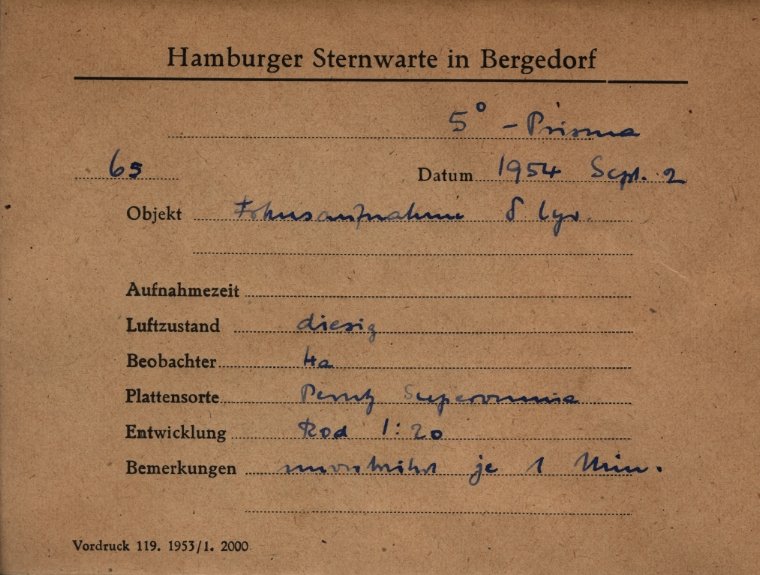 Hamburger Sternwarte in Bergedorf
5° - Prisma
65
Datum 1954 Sept. 2
Objekt Fokusaufnahme δ Lyr.
Aufnahmezeit
Luftzustand diesig
Beobachter Ha
Plattensorte Perutz Superomnia
Entwicklung Rod 1:20
Bemerkungen je 1 Min.
Vordruck 119. 1953/1. 2000